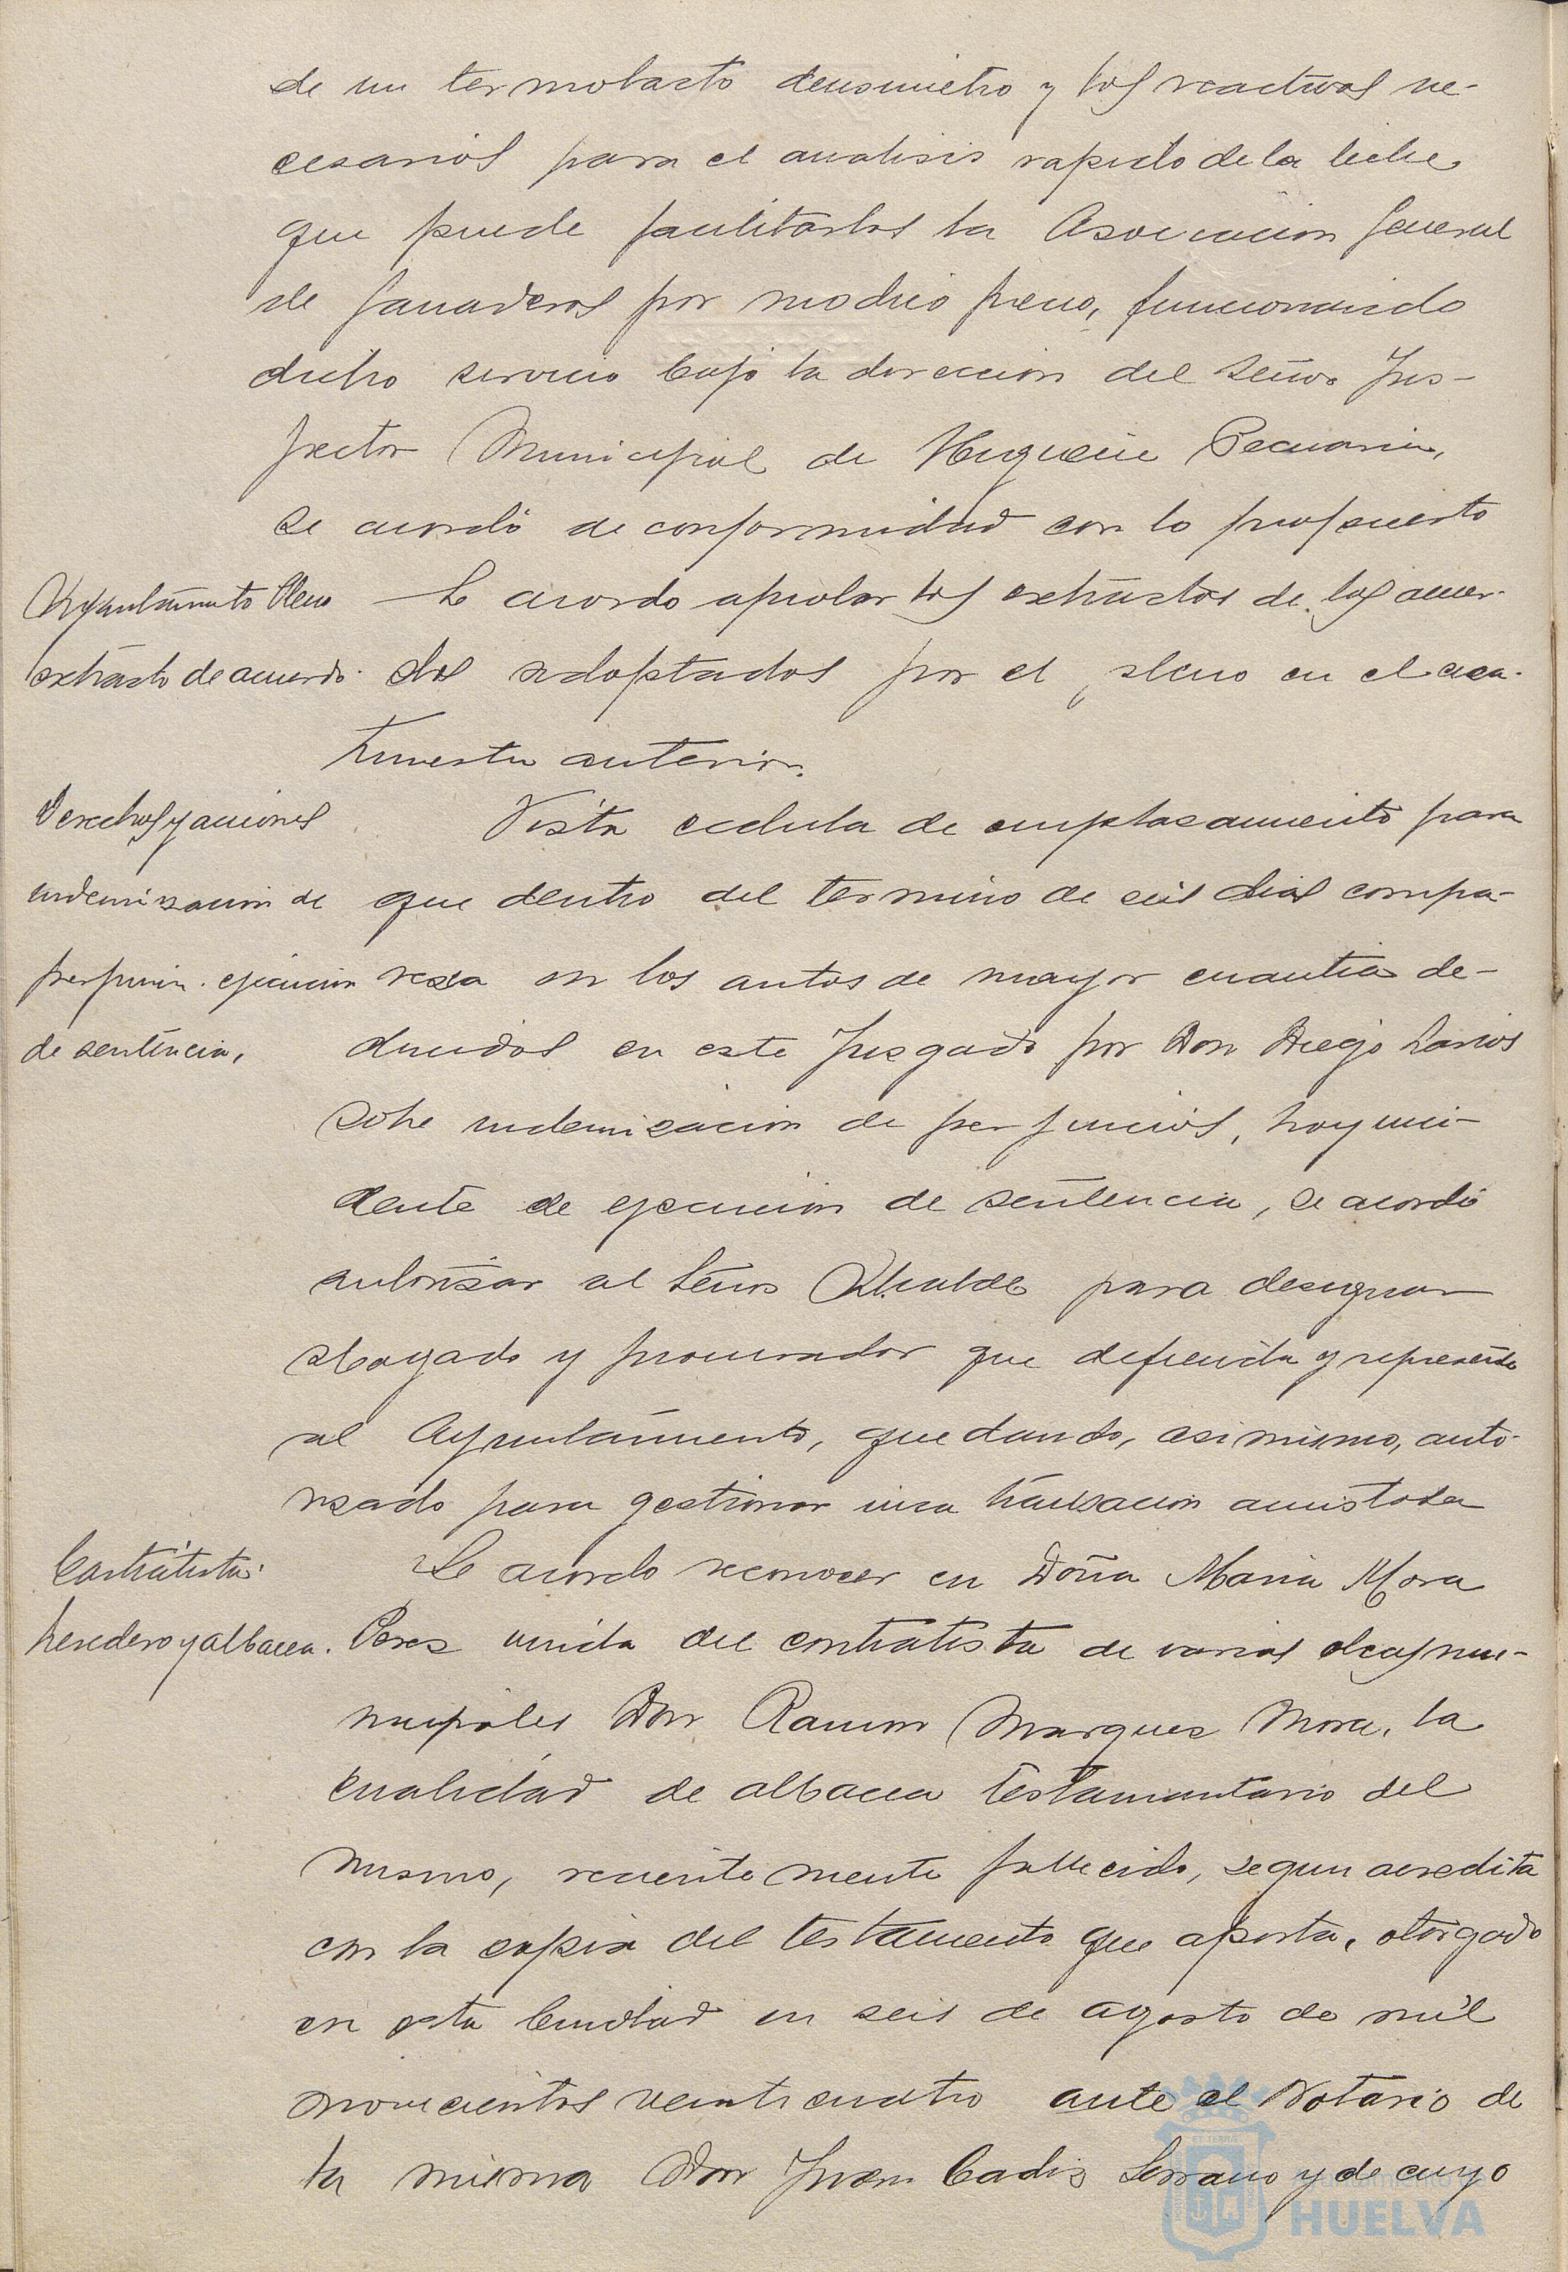 de un termolacto densimetro y los reactivos ne-
cesarios para el analisis rapido de la leche
que puede facilitarlos la Asociacion General
de Ganaderos por modico precio, funcionando
dicho servicio bajo la direccion del Señor Ins-
pector Municipal de Higiene Pecuaria,
se acordó de conformidad con lo propuesto
Ayuntamiento Pleno
extracto de acuerdo.
Se acordo aprobar los extractos de los acuer-
dos adoptados por el pleno en el cua-
trimestre anterior.
Derechos y acciones
indemnizacion de
perjuicios. ejecucion
de sentencia,
Vista cedula de emplazamiento para
que dentro del termino de seis dias compa-
rezca en los autos de mayor cuantia de-
ducidos en este Juzgado por Don Diego Larios
sobre indemnizacion de perjuicios, hoy inci-
dente de ejecucion de sentencia, se acordó
autorizar al Señor Alcalde para designar
abogado y procurador que defienda y represente
al Ayuntamiento, quedando, asi mismo, auto-
rizado para gestionar una transacion amistosa
Contratista:
heredero y albacea.
Se acordo reconocer en Doña Maria Mora
Perez viuda del contratista de varias obras mu-
nicipales Don Ramon Marquez Mora, la
cualidad de albacea testamentario del
mismo, recientemente fallecido, segun acredita
con la copia del testamento que aporta, otorgado
en esta Ciudad en seis de agosto de mil
novecientos veinticuatro ante el Notario de
la misma Don Juan Cadiz Serrano y de cuyo
Ayuntamiento de
HUELVA